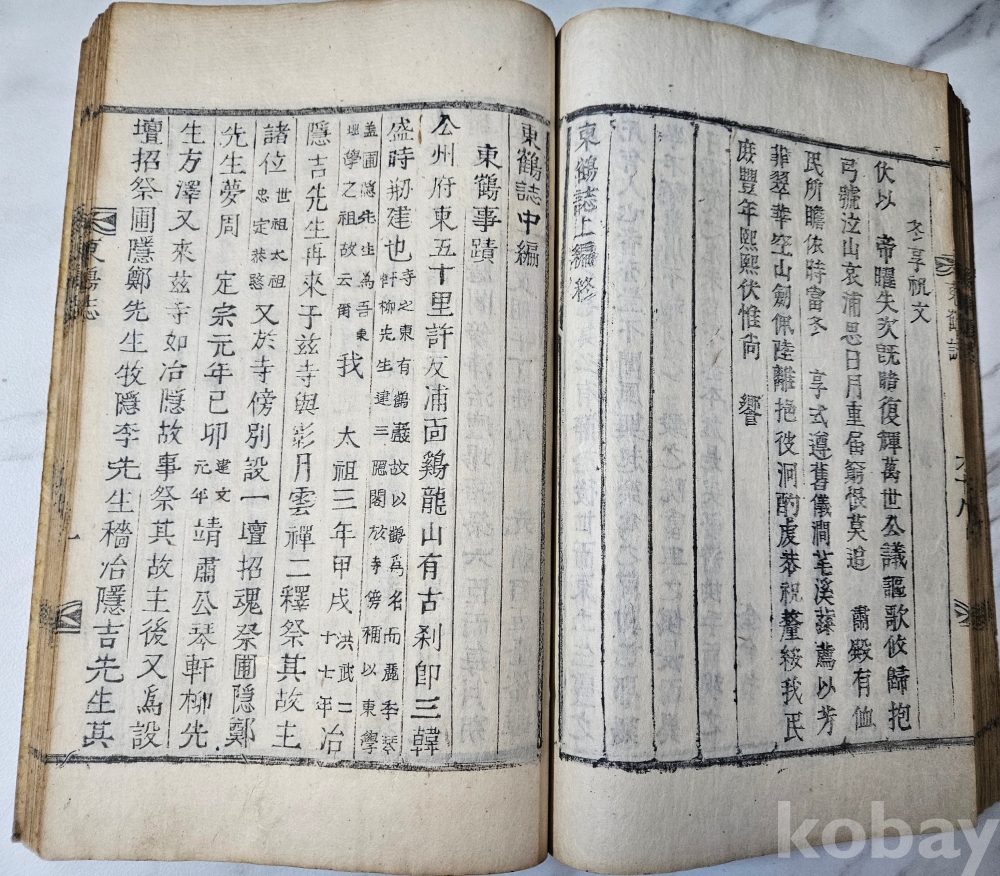 冬享祝文
伏以 帝曜失次旣睹復輝萬世公議謳歌攸歸抱
弓號泣山哀浦思日月重届窮恨莫追 肅殿有侐
民所瞻依時當冬 享式遵舊儀澗芼溪蘋薦以芳
菲翠華空山劍佩陸離挹彼泂酌虔恭祝釐綏我民
庶豐年熙熙伏惟尙 饗
東鶴誌上編終
東鶴誌
六十八
東鶴誌中編
東鶴事蹟
公州府東五十里許反浦面鷄龍山有古刹卽三韓
盛時刱建也寺之東有鶴巖故以鶴爲名而麗季琴軒柳先生建三隱閣於寺傍稱以東學
盖圃隱先生爲吾東理學之祖故云爾 我 太祖三年甲戌洪武二十七年冶
隱吉先生再來于玆寺與影月雲禪二釋祭其故主
諸位世祖太祖忠定恭愍又於寺傍別設一壇招魂祭圃隱鄭
先生夢周 定宗元年己卯建文元年靖肅公琴軒柳先
生方澤又來玆寺如冶隱故事祭其故主後又爲設
壇招祭圃隱鄭先生牧隱李先生穡冶隱吉先生其
東鶴誌
一
kobay